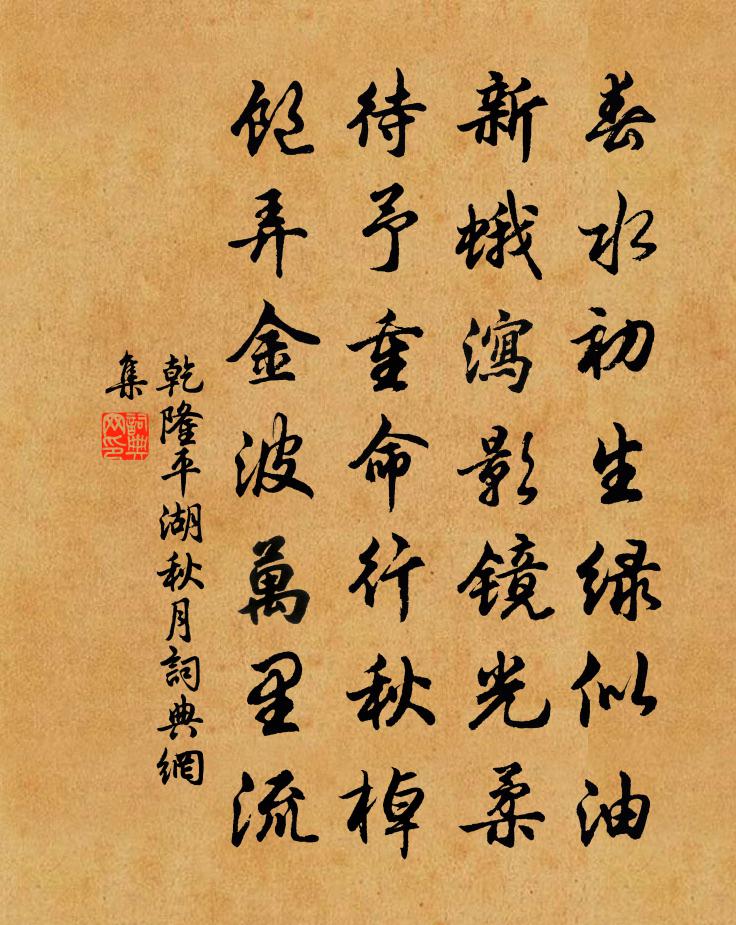 春水初生緑似油
新蛾瀉影鏡光柔
待予重命行秋棹
飽弄金波萬里流
乾隆平湖秋月詞典網
集
詞典
网印